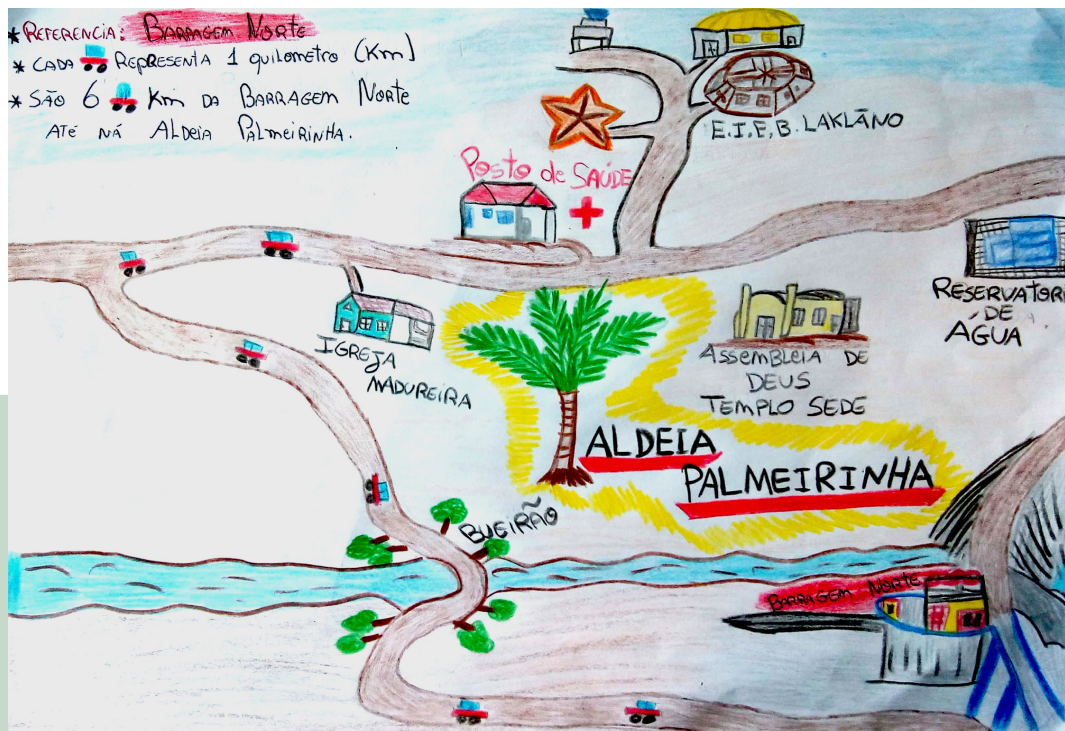 * REFERENCIA: BARRAGEM NORTE
* CADA REPRESENTA 1 QUILOMETRO (Km)
* SÃO 6 Km DA BARRAGEM NORTE
ATÉ NÁ ALDEIA PALMEIRINHA.
E.I.E.B. LAKLÃNO
Posto de SAÚDE
RESERVATOR
DE
ÁGUA
IGREJA
MADUREIRA
ASSEMBLEIA DE
DEUS
TEMPLO SEDE
ALDEIA
PALMEIRINHA
BUEIRÃO
BARRAGEM NORTE